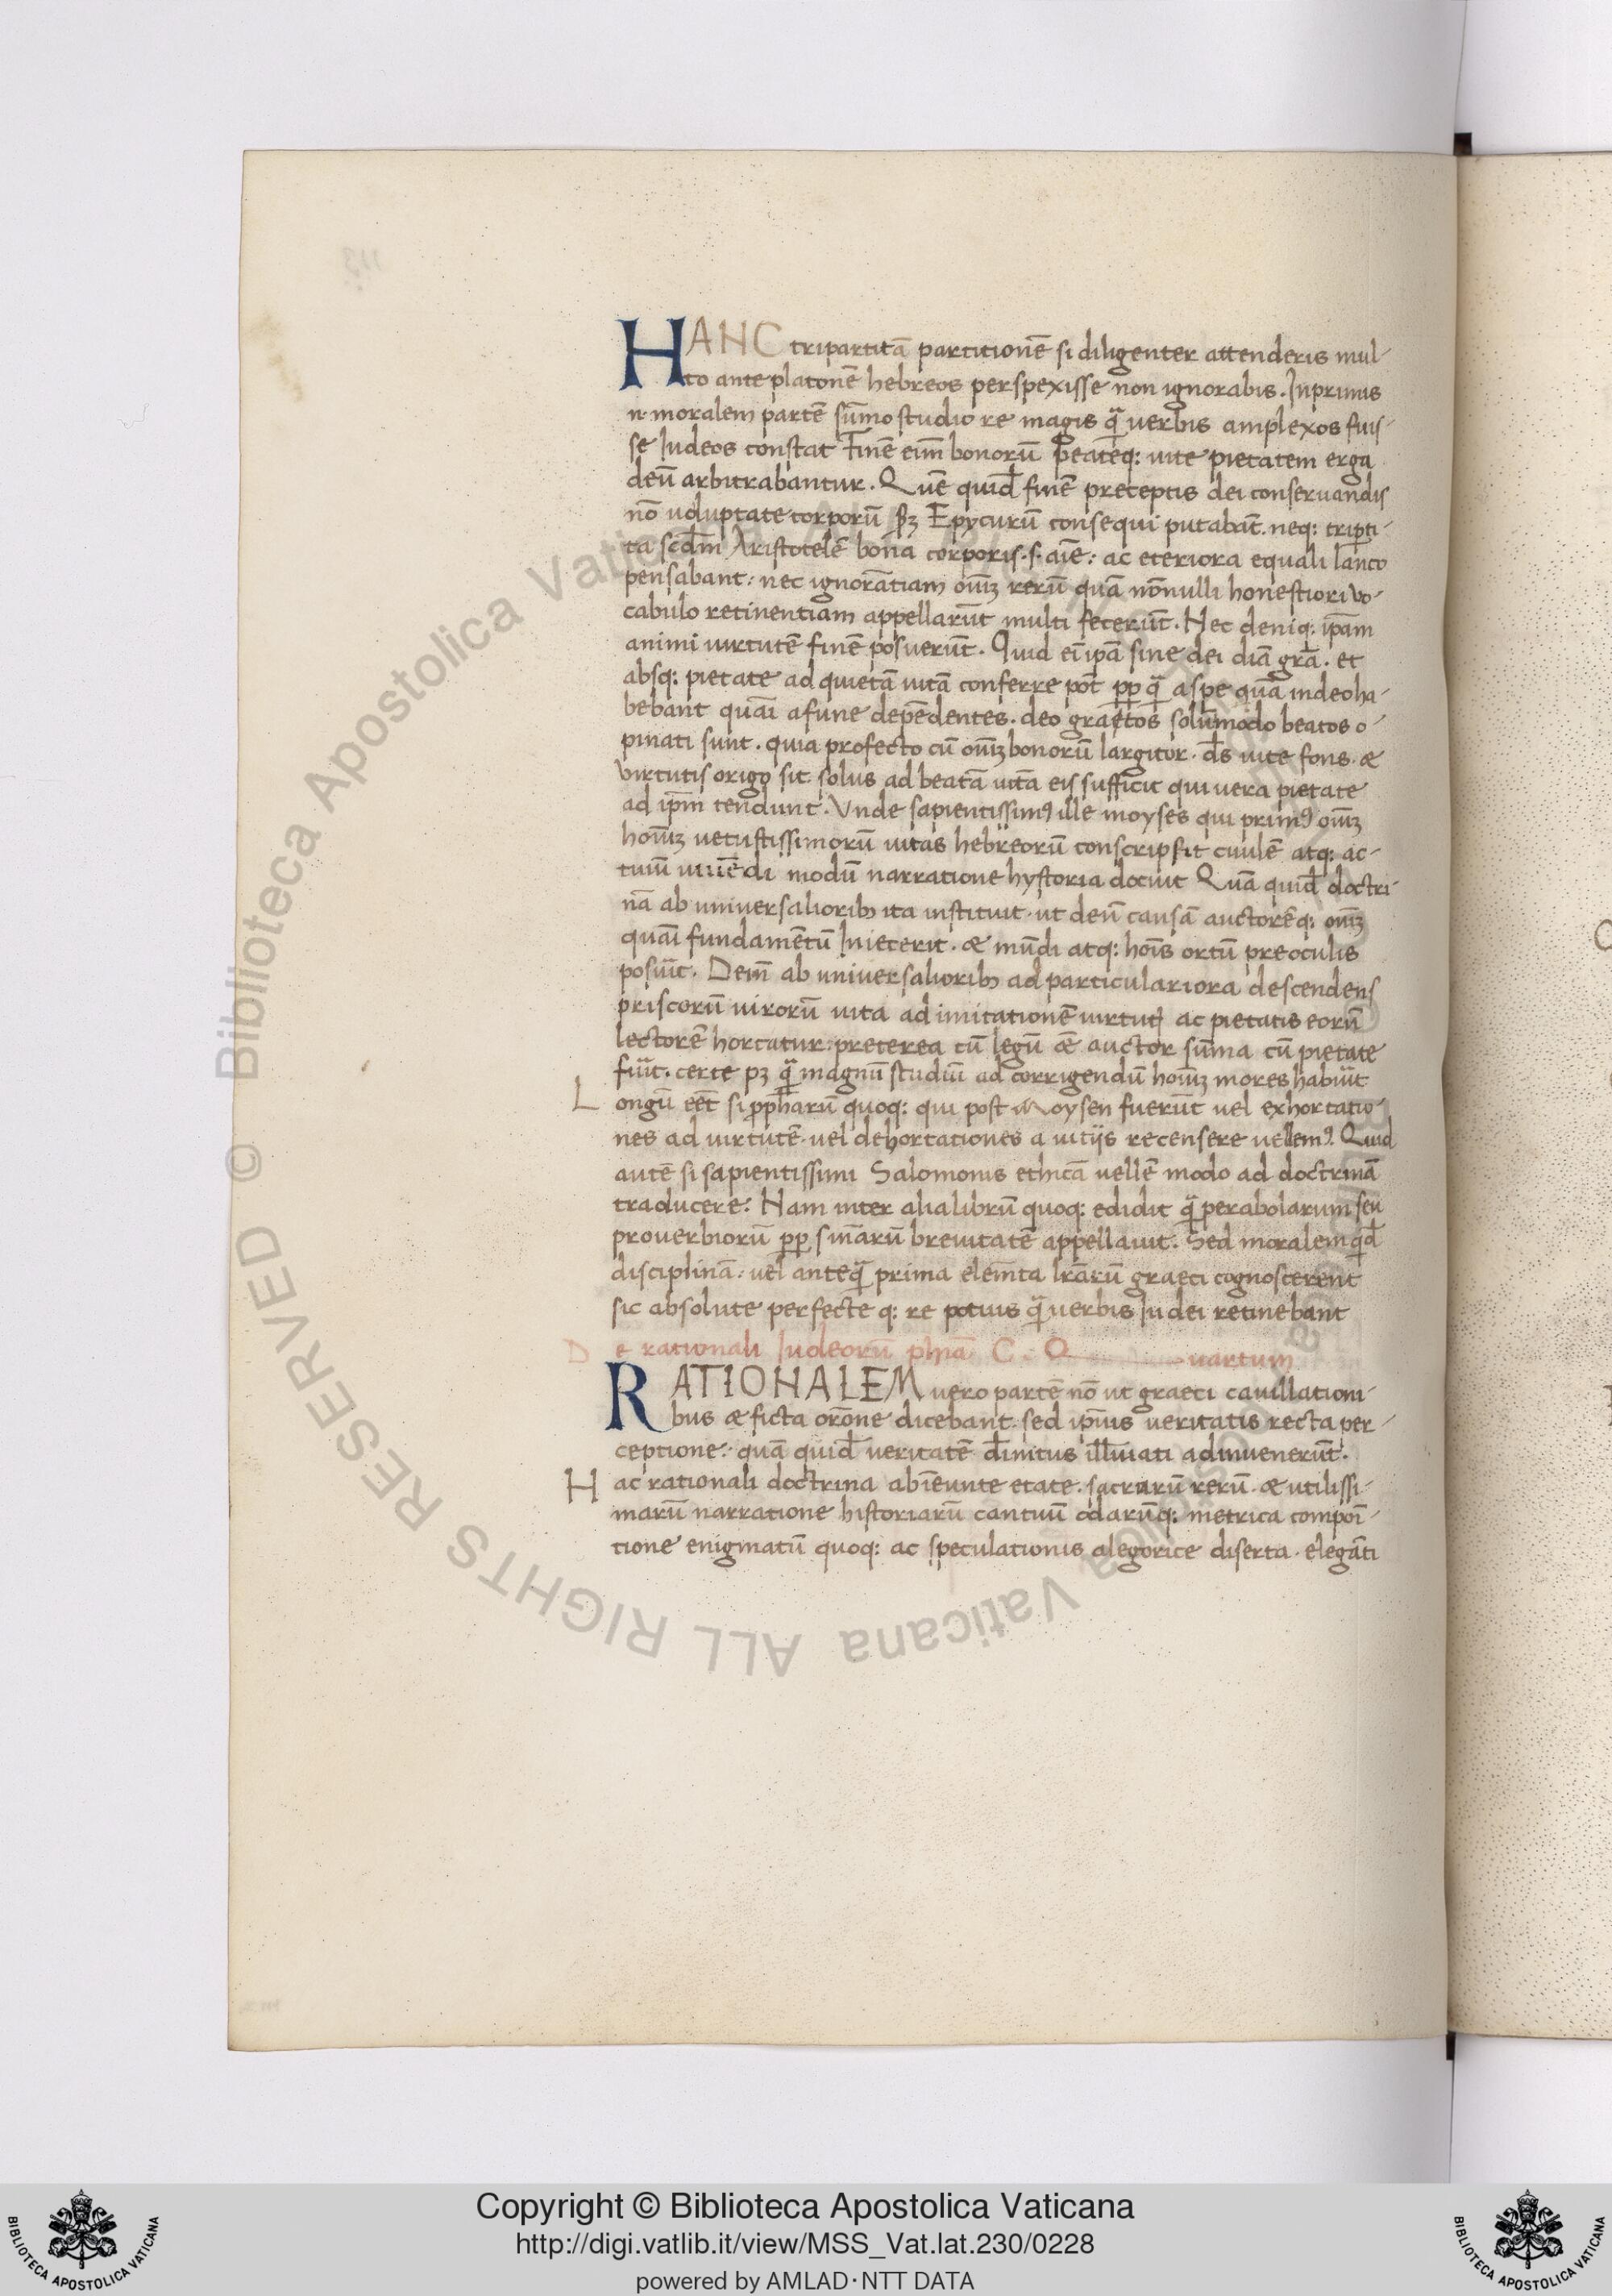 HANC tripartitā partitionē si diligenter attenderis mul-
to ante platonē hebreos perspexisse non ignorabis. Inprimis
n· moralem partē sūmo studio re magis q̄ verbis amplexos fuis-
se Iudeos constat Finē eim̄ bonorū beatēq: vite pietatem erga
deū arbitrabantur. Quē quid̄ finē preceptis dei conservandis
nō voluptate corporū Epycurū consequi putabāt. neq: triꝑti-
ta scd̄m Aristotelē bona corporis·s·aīe: ac eteriora equali lance
pensabant: nec ignorātiam oīuꝫ rerū quā nōnulli honestiori vo-
cabulo retinentiam appellarūt multi fecerūt. Nec deniq: ip̄am
animi virtutē finē posuerūt. Quid ei ip̄ā sine dei diā gr̄a. et
absq: pietate ad quietā vitā conferre pōt ꝓp q̄ a spe quā in deo ha-
bebant quāī a fune depēdentes. deo graetos solūmodo beatos o-
pinati sunt. quia profecto cū oīuꝫ bonorū largitor. d̄s vite fons. æ
virtutis origo sit solus ad beatā vitā eis sufficit qui vera pietate
ad ip̄m tendunt. Vnde sapientissimꝰ ille moyses qui primꝰ oīuꝫ
hoīuꝫ vetustissimorū vitas hebreorū conscripsit civilē atq: ac-
tivū vivēdi modū narratione hystoria docuit Quā quid̄ doctri-
nā ab universaliorib; ita instituit. ut deū causā auctorēq: oīuꝫ
quāī fundamētū Iniecerit. æ mūdi atq: hoīs ortū preoculis
posuīt. Deīn ab universaliorib; ad particulariora descendens
priscorū virorū vita ad imitationē virtutꝭ ac pietatis eorū
lectorē hortatur: preterea cū legū æ auctor sūma cū pietate
fuīt. certe pꝫ q̄ magnū studiū ad corrigendū hoīuꝫ mores habuīt
Longū eēt si ꝓpharū quoq: qui post Moysen fuerūt vel exhortatio-
nes ad virtutē. vel dehortationes a vitijs recensere vellemꝰ. Quid
autē si sapientissimi Salomonis ethicā vellē modo ad doctrinā
traducere. Nam inter alia librū quoq: edidit q̄ perabolarum seu
proverbiorū ꝓp sn̄iarū brevitatē appellavit. Sed moralem qd̄
disciplinā: vel anteq̄ prima elem̄ta lrārū graeci cognoscerent
sic absolute perfecte q: re potius q̄ verbis Iudei retinebant
De rationali Iudeorū phīa C. Quartum
RATIONALEM vero partē nō ut graeci cavillationi-
bus æ ficta orōne dicebant. sed ip̄ius veritatis recta per-
ceptione: quā quid̄ veritatē d̄initus illūinati adinvenerūt.
Hac rationali doctrina ab ieunte etate. sacrarū rerū. æ utilissi-
marū narratione historiarū cantuū odarūq: metrica compoī-
tione enigmatū quoq: ac speculationis alegorice diserta. elegāti
Copyright © Biblioteca Apostolica Vaticana
http://digi.vatlib.it/view/MSS_Vat.lat.230/0228
powered by AMLAD·NTT DATA
BIBLIOTECA APOSTOLICA VATICANA
BIBLIOTECA APOSTOLICA VATICANA
© Biblioteca Apostolica Vaticana ALL RIGHTS RESERVED